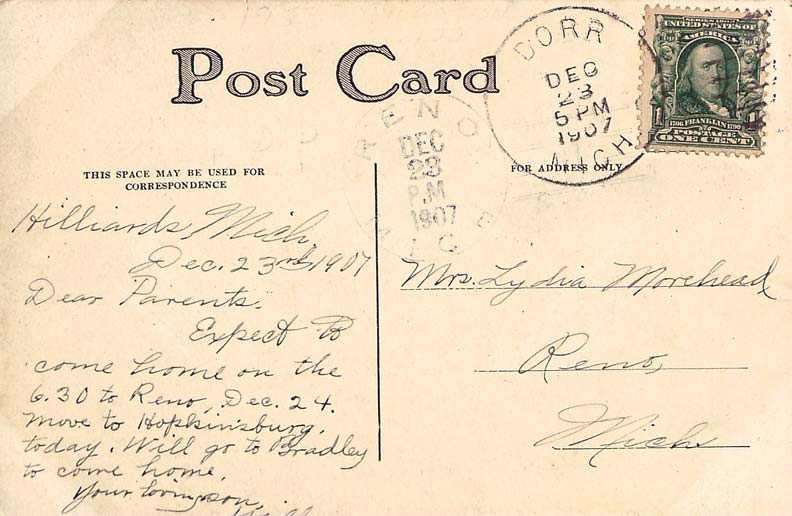 Post Card
DORR
DEC
23
5 PM
1907
MICH
SERIES 1902
UNITED STATES OF
AMERICA
1 1
1706 FRANKLIN 1790
POSTAGE
ONE CENT
RENO
DEC
23
P.M
1907
THIS SPACE MAY BE USED FOR
CORRESPONDENCE
FOR ADDRESS ONLY
Hilliards, Mich,
Dec. 23rd, 1907
Dear Parents.
Expect to
come home on the
6.30 to Reno, Dec. 24.
Move to Hopkinsburg,
today. Will go to Bradley
to come home.
Your loving son,
Mrs. Lydia Morehead
Reno,
Mich.